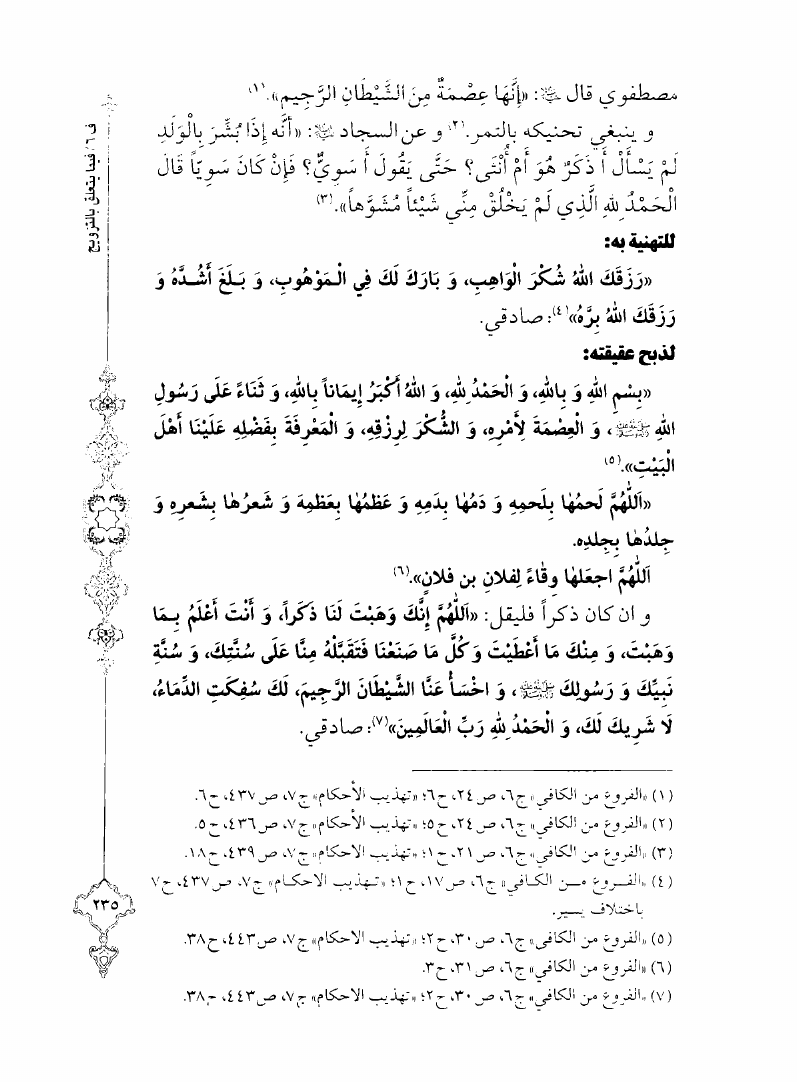 مصطفوي قال ﷺ: «إِنَّهَا عِصْمَةٌ مِنَ الشَّيْطَانِ الرَّجِيمِ».(١)
و ينبغي تحنيكه بالتمر.(٢) و عن السجاد: «أَنَّه إِذَا بُشِّرَ بِالْوَلَدِ
لَمْ يَسْأَلْ أَ ذَكَرٌ هُوَ أَمْ أُنْثَى؟ حَتَّى يَقُولَ أَ سَوِيٌّ؟ فَإِنْ كَانَ سَوِيّاً قَالَ
الْحَمْدُ لِلهِ الَّذِي لَمْ يَخْلُقْ مِنِّي شَيْئاً مُشَوَّهاً».(٣)
للتهنية به:
«رَزَقَكَ اللهُ شُكْرَ الْوَاهِبِ، وَ بَارَكَ لَكَ فِي الْمَوْهُوبِ، وَ بَلَغَ أَشُدَّهُ وَ
رَزَقَكَ اللهُ بِرَّهُ»(٤): صادقي.
لذبح عقيقته:
«بِسْمِ اللهِ وَ بِاللهِ، وَ الْحَمْدُ لِلهِ، وَ اللهُ أَكْبَرُ إِيمَاناً بِاللهِ، وَ ثَنَاءً عَلَى رَسُولِ
اللهِ ﷺ، وَ الْعِصْمَةَ لِأَمْرِهِ، وَ الشُّكْرَ لِرِزْقِهِ، وَ الْمَعْرِفَةَ بِفَضْلِهِ عَلَيْنَا أَهْلَ
الْبَيْتِ».(٥)
«اَللّٰهُمَّ لَحمُهٰا بِلَحمِهِ وَ دَمُهٰا بِدَمِهِ وَ عَظمُهٰا بِعَظمِهِ وَ شَعرُهٰا بِشَعرِهِ وَ
جِلدُهٰا بِجِلدِه.
اَللّٰهُمَّ اجعَلهٰا وِقٰاءً لِفلانِ بن فلانٍ».(٦)
و ان كان ذكراً فليقل: «اَللّٰهُمَّ إِنَّكَ وَهَبْتَ لَنَا ذَكَراً، وَ أَنْتَ أَعْلَمُ بِمَا
وَهَبْتَ، وَ مِنْكَ مَا أَعْطَيْتَ وَ كُلَّ مَا صَنَعْنَا فَتَقَبَّلْهُ مِنَّا عَلَى سُنَّتِكَ، وَ سُنَّةِ
نَبِيِّكَ وَ رَسُولِكَ ﷺ، وَ اخْسَأْ عَنَّا الشَّيْطَانَ الرَّجِيمَ، لَكَ سُفِكَتِ الدِّمَاءُ،
لَا شَرِيكَ لَكَ، وَ الْحَمْدُ لِلهِ رَبِّ الْعَالَمِينَ»(٧): صادقي.
(١) «الفروع من الكافي» ج٦، ص ٢٤، ح٦؛ «تهذيب الأحكام» ج٧، ص ٤٣٧، ح٦.
(٢) «الفروع من الكافي» ج٦، ص ٢٤، ح٥؛ «تهذيب الأحكام» ج٧، ص ٤٣٦، ح٥.
(٣) «الفروع من الكافي» ج٦، ص ٢١، ح١؛ «تهذيب الاحكام» ج٧، ص ٤٣٩، ح١٨.
(٤) «الفروع من الكافي» ج٦، ص١٧، ح١؛ «تهذيب الاحكام» ج٧، ص٤٣٧، ح٧
باختلاف يسير.
(٥) «الفروع من الكافي» ج٦، ص ٣٠، ح٢؛ «تهذيب الاحكام» ج٧، ص٤٤٣، ح٣٨.
(٦) «الفروع من الكافي» ج٦، ص ٣١، ح٣.
(٧) «الفروع من الكافي» ج٦، ص ٣٠، ح٢؛ «تهذيب الاحكام» ج٧، ص٤٤٣، ح٣٨.
ف ٦ / فيما يتعلق بالتزويج
٢٣٥